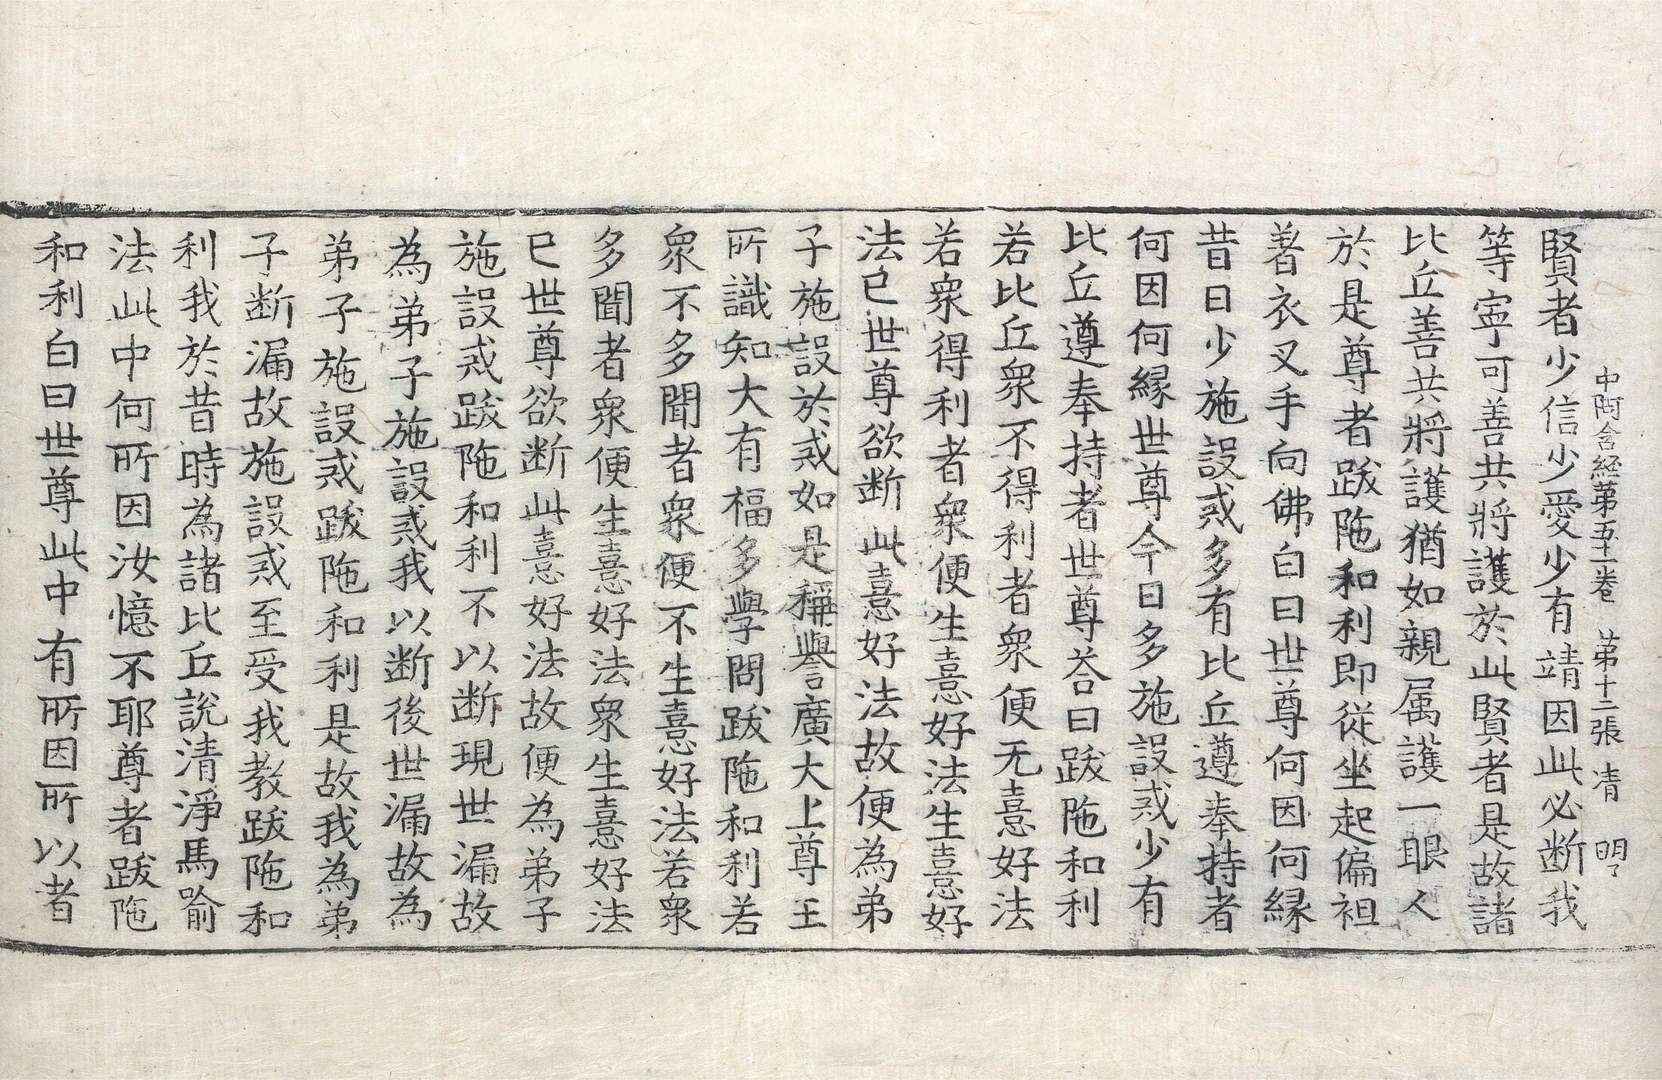 中阿含経第五十一卷 第十二張 清 明
賢者少信少愛少有靖因此必断我
等寧可善共將護於此賢者是故諸
比丘善共將護猶如親属護一眼人
於是尊者跋陁和利即従坐起偏袒
著衣叉手向佛白曰世尊何因何縁
昔日少施設或多有比丘遵奉持者
何因何縁世尊今日多施設或少有
比丘遵奉持者世尊荅曰跋陁和利
若比丘衆不得利者衆便无憙好法
若衆得利者衆便生憙好法生憙好
法已世尊欲断此憙好法故便為弟
子施設於或如是稱譽廣大上尊王
所識知大有福多學問跋陁和利若
衆不多聞者衆便不生憙好法若衆
多聞者衆便生憙好法衆生憙好法
已世尊欲断此憙好法故便為弟子
施設或跋陁和利不以断現世漏故
為弟子施設或我以断後世漏故為
弟子施設或跋陁和利是故我為弟
子断漏故施設或至受我教跋陁和
利我於昔時為諸比丘説清淨馬喻
法此中何所因汝憶不耶尊者跋陁
和利白曰世尊此中有所因所以者